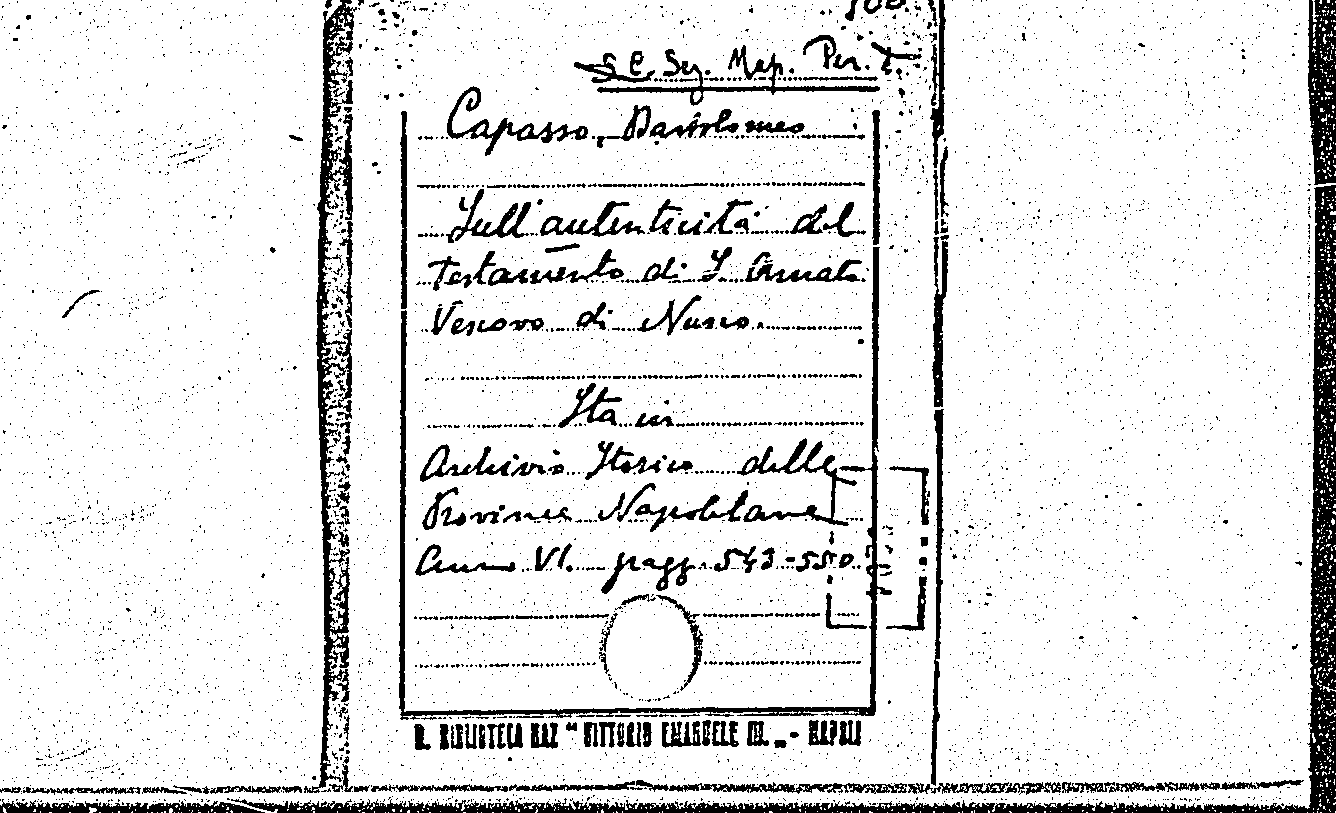 S. C. Sez. Mep. Per. I.
Capasso, Bartolomeo
Sull'autenticità del
Testamento di S. Amato
Vescovo di Nusco.
Sta in
Archivio Storico delle
Province Napoletane
Anno VI. pagg. 543-550
R. BIBLIOTECA NAZ "VITTORIO EMANUELE III." - NAPOLI